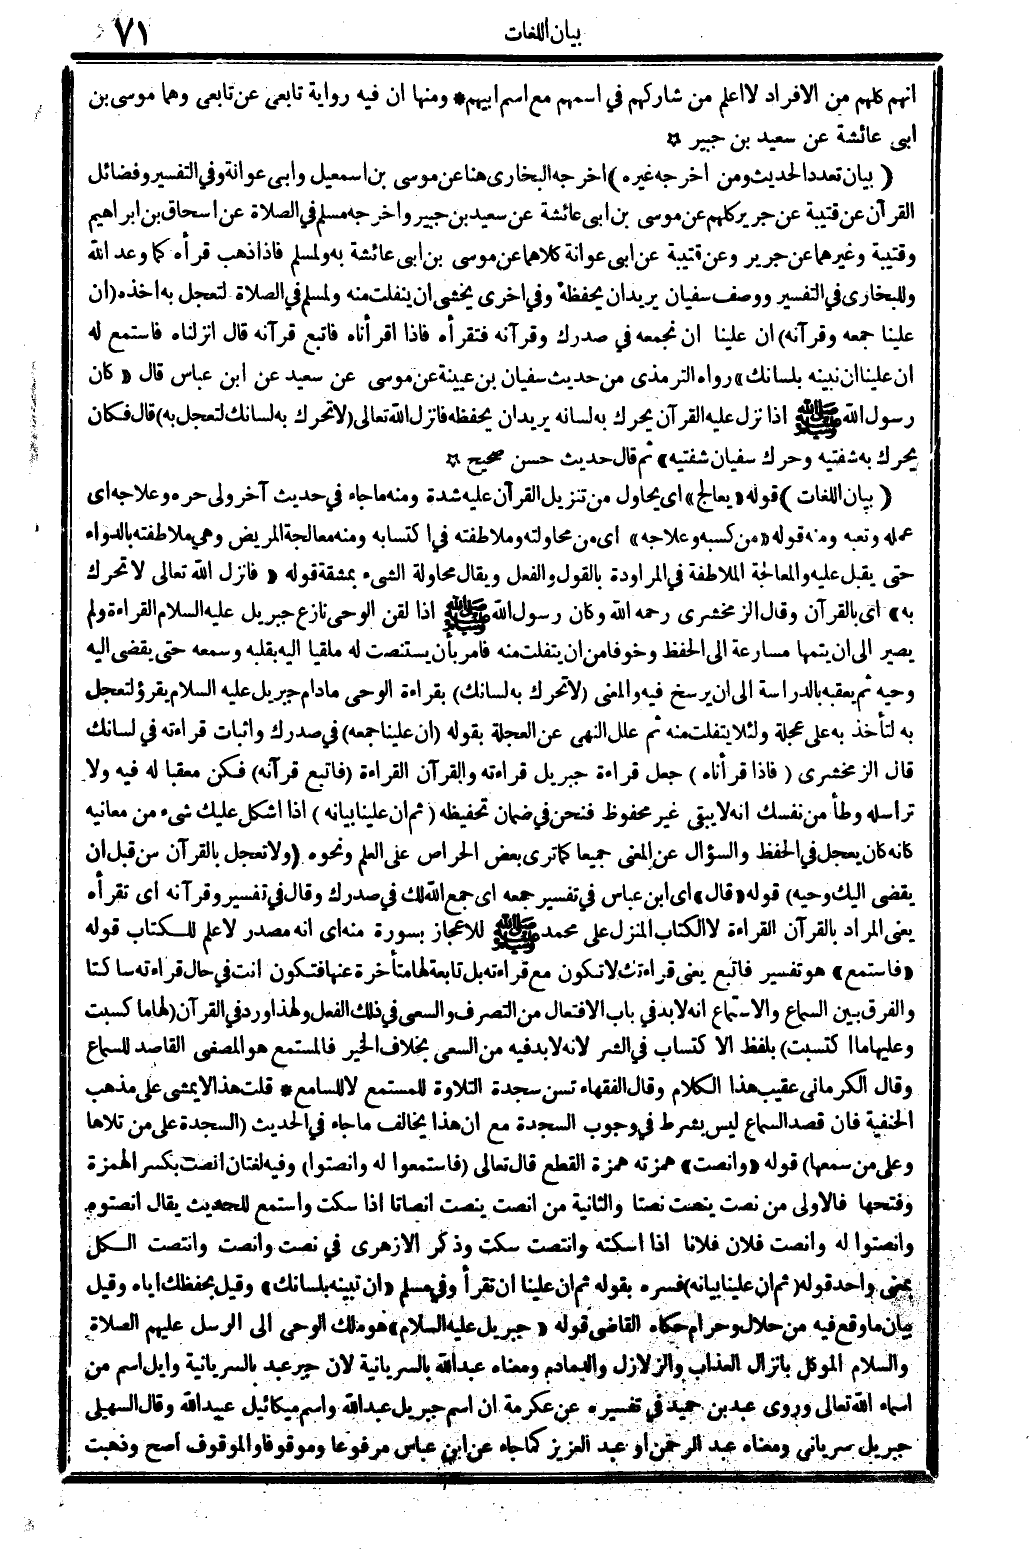 بيان اللغات
٧١
انهم كلهم من الافراد لا اعلم من شاركهم في اسمهم مع اسم ابيهم* ومنها ان فيه رواية تابعى عن تابعى وهما موسى بن
ابى عائشة عن سعيد بن جبير ☆
( بيان تعدد الحديث ومن اخرجه غيره ) اخرجه البخارى هنا عن موسى بن اسمعيل وابى عوانة وفي التفسير وفضائل
القرآن عن قتيبة عن جرير كلهم عن موسى بن ابى عائشة عن سعيد بن جبير واخرجه مسلم في الصلاة عن اسحاق بن ابراهيم
وقتيبة وغيرهما عن جرير وعن قتيبة عن ابى عوانة كلاهما عن موسى بن ابى عائشة به ولمسلم فاذا ذهب قرأه كما وعد الله
وللبخارى في التفسير ووصف سفيان يريد ان يحفظه وفي اخرى يخشى ان ينفلت منه ولمسلم في الصلاة لتعجل به اخذه (ان
علينا جمعه وقرآنه) ان علينا ان نجمعه في صدرك وقرآنه فتقرأه فاذا اقرأناه فاتبع قرآنه قال انزلناه فاستمع له
ان علينا ان نبينه بلسانك» رواه الترمذى من حديث سفيان بن عيينة عن موسى عن سعيد عن ابن عباس قال « كان
رسول الله ﷺ اذا نزل عليه القرآن يحرك به لسانه يريد ان يحفظه فانزل الله تعالى (لا تحرك به لسانك لتعجل به) قال فكان
يحرك به شفتيه وحرك سفيان شفتيه» ثم قال حديث حسن صحيح ☆
( بيان اللغات ) قوله « يعالج» اى يحاول من تنزيل القرآن عليه شدة ومنه ما جاء في حديث آخر ولى حره وعلاجه اى
عمله وتعبه ومنه قوله «من كسبه وعلاجه» اى من محاولته وملاطفته في اكتسابه ومنه معالجة المريض وهي ملاطفته بالدواء
حتى يقبل عليه والمعالجة الملاطفة في المراودة بالقول والفعل ويقال محاولة الشىء بمشقة قوله « فانزل الله تعالى لا تحرك
به» اى بالقرآن وقال الزمخشرى رحمه الله وكان رسول الله ﷺ اذا لقن الوحى نازع جبريل عليه السلام القراءة ولم
يصبر الى ان يتمها مسارعة الى الحفظ وخوفا من ان يتفلت منه فامر بأن يستنصت له ملقيا اليه بقلبه وسمعه حتى يقضى اليه
وحيه ثم يعقبه بالدراسة الى ان يرسخ فيه والمعنى (لا تحرك به لسانك) بقراءة الوحى ما دام جبريل عليه السلام يقرؤ لتعجل
به لتأخذ به على عجلة ولئلا يتفلت منه ثم علل النهى عن العجلة بقوله (ان علينا جمعه) في صدرك واثبات قراءته في لسانك
قال الزمخشرى ( فاذا قرأناه ) جعل قراءة جبريل قراءته والقرآن القراءة (فاتبع قرآنه) فكن معقبا له فيه ولا
تراسله وطأ من نفسك انه لا يبقى غير محفوظ فنحن في ضمان تحفيظه ( ثم ان علينا بيانه ) اذا اشكل عليك شىء من معانيه
كانه كان يعجل في الحفظ والسؤال عن المعنى جميعا كما ترى بعض الحراص على العلم ونحوه (ولا تعجل بالقرآن من قبل ان
يقضى اليك وحيه) قوله «قال» اى ابن عباس في تفسير جمعه اى جمع الله لك في صدرك وقال في تفسير وقرآنه اى تقرأه
يعنى المراد بالقرآن القراءة لا الكتاب المنزل على محمد ﷺ للاعجاز بسورة منه اى انه مصدر لا علم للكتاب قوله
«فاستمع» هو تفسير فاتبع يعنى قراءتك لا تكون مع قراءته بل تابعة لها متأخرة عنها فتكون انت في حال قراءته ساكتا
والفرق بين السماع والاستماع انه لا بد في باب الافتعال من التصرف والسعى في ذلك الفعل ولهذا ورد في القرآن (لها ما كسبت
وعليها ما اكتسبت) بلفظ الاكتساب في الشر لانه لا بد فيه من السعى بخلاف الخير فالمستمع هو المصغى القاصد للسماع
وقال الكرمانى عقيب هذا الكلام وقال الفقهاء تسن سجدة التلاوة للمستمع لا للسامع* قلت هذا لا يمشى على مذهب
الحنفية فان قصد السماع ليس بشرط في وجوب السجدة مع ان هذا يخالف ما جاء في الحديث (السجدة على من تلاها
وعلى من سمعها) قوله «وانصت» همزته همزة القطع قال تعالى (فاستمعوا له وانصتوا) وفيه لغتان انصت بكسر الهمزة
وفتحها فالاولى من نصت ينصت نصتا والثانية من انصت ينصت انصاتا اذا سكت واستمع للحديث يقال انصتوه
وانصتوا له وانصت فلان فلانا اذا اسكته وانتصت سكت وذكر الازهرى في نصت وانصت وانتصت الكل
بمعنى واحد قوله ( ثم ان علينا بيانه) فسره بقوله ثم ان علينا ان تقرأ وفي مسلم «ان تبينه بلسانك» وقيل بحفظك اياه وقيل
بيان ما وقع فيه من حلال وحرام حكاه القاضى قوله « جبريل عليه السلام» هو ملك الوحى الى الرسل عليهم الصلاة
والسلام الموكل بانزال العذاب والزلازل والدمادم ومعناه عبد الله بالسريانية لان جبر عبد بالسريانية وايل اسم من
اسماء الله تعالى وروى عبد بن حميد في تفسيره عن عكرمة ان اسم جبريل عبد الله واسم ميكائيل عبيد الله وقال السهيلى
جبريل سريانى ومعناه عبد الرحمن او عبد العزيز كما جاء عن ابن عباس مرفوعا وموقوفا والموقوف اصح وذهبت